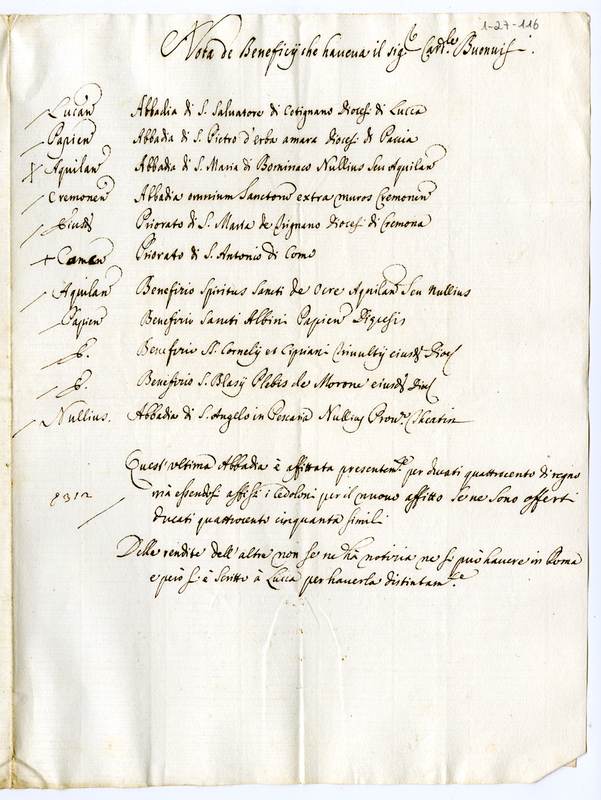 1-27-116
Nota de Beneficij che haveva il sig.r Card.le Buonvisi.
Lucan. Abbadia di S. Salvatore di Cetignano Diocesi di Lucca
Papien. Abbadia di S. Pietro d'erba amara Diocesi di Pavia
Aquilan. Abbadia di S. Maria di Bominaco Nullius seu Aquilan.
Cremonen. Abbadia omnium Sanctorum extra muros Cremonen.
Eiusd. Priorato di S. Maria de Diocesi di Cremona
Comen. Priorato di S. Antonio di Como
Aquilan. Benefizio Spiritus Sancti de Ocre Aquilan. seu Nullius
Papien. Benefizio Sancti Albini Papien. Diocesis
Benefizio SS. Cornelij et Cipriani eiusd. Dioc.
Benefizio S. Blasij Plebis de Morone eiusd. Dioc.
Nullius. Abbadia di S. Angelo in Pescaria Nullius Prov. Theatin.
Quest'ultima Abbadia è affittata presentem.te per ducati quattrocento di regno
mà essendosi affissi i Cedoloni per il nuovo affitto se ne sono offerti
ducati quattrocento cinquanta simili
Delle rendite dell'altre non se ne hà notizia ne si può havere in Roma
e però si è scritto à Lucca per haverla distintam.te